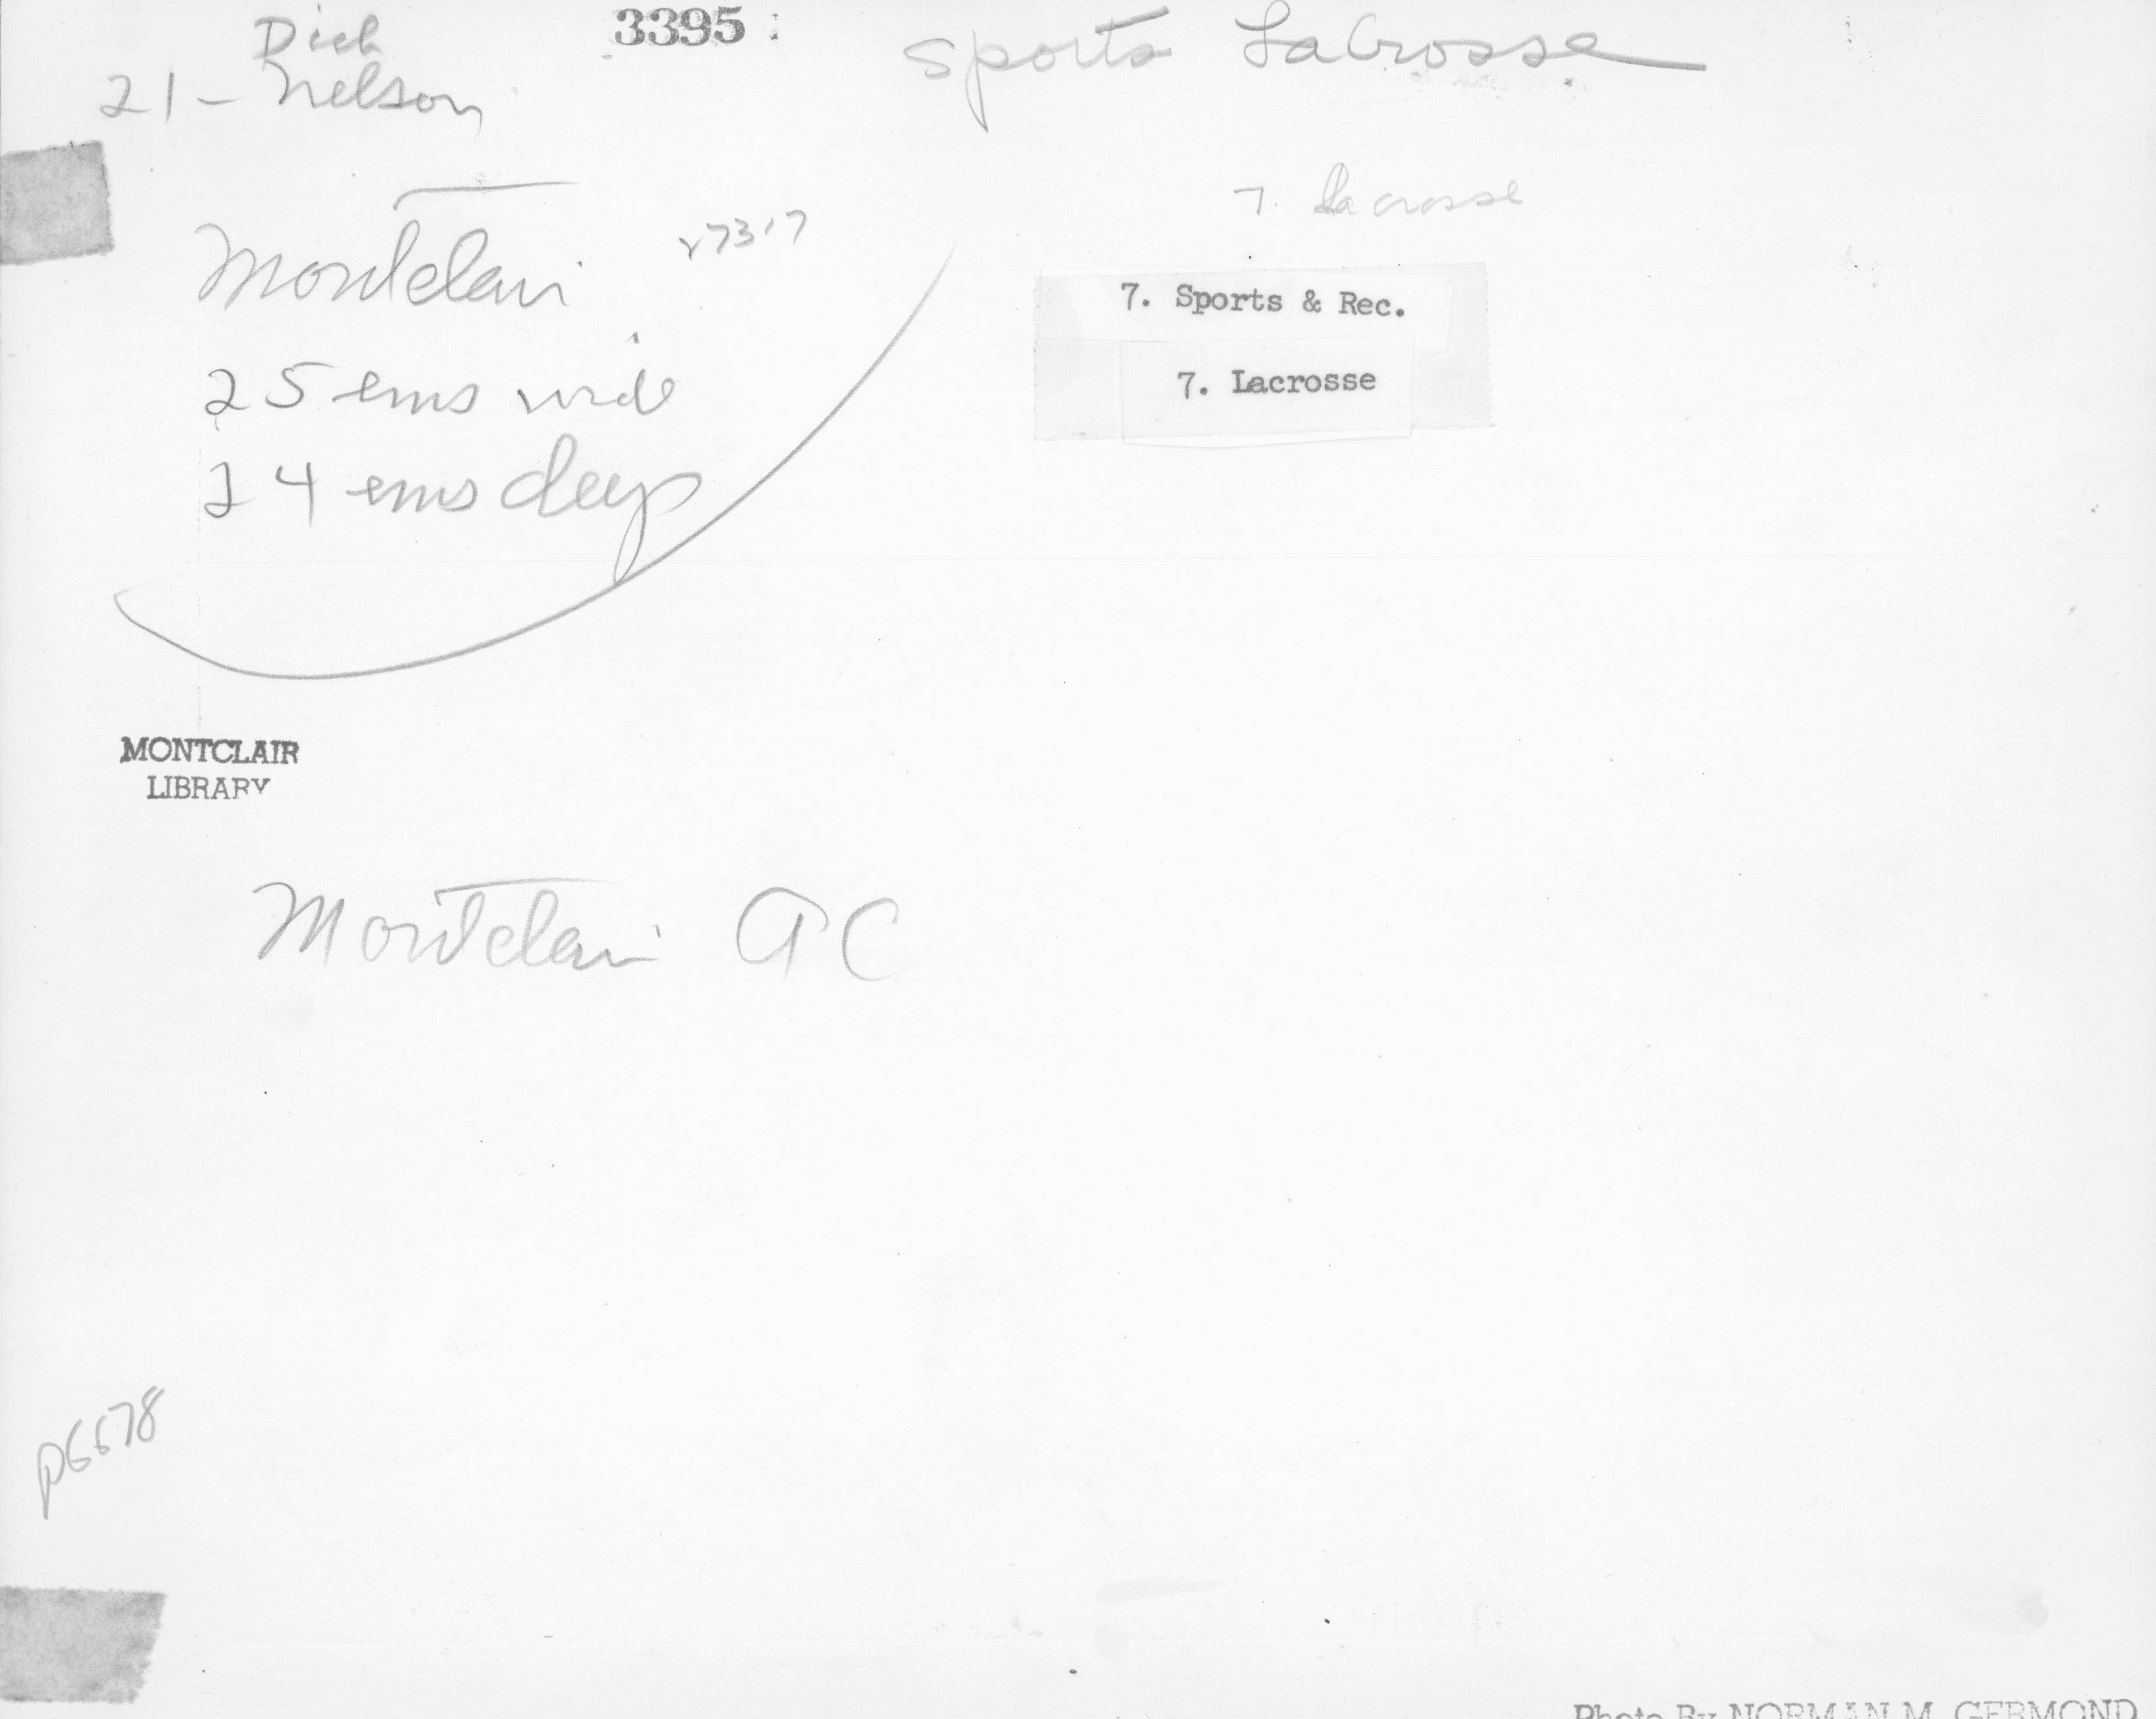 3395
Sports LaCrosse
Dick
21 - Nelson
7. Lacrosse
Montclair
7. Sports & Rec.
7. Lacrosse
25 ems wide
24 ems deep
MONTCLAIR
LIBRARY
Montclair AC
P6678
Photo By NORMAN M. GERMOND